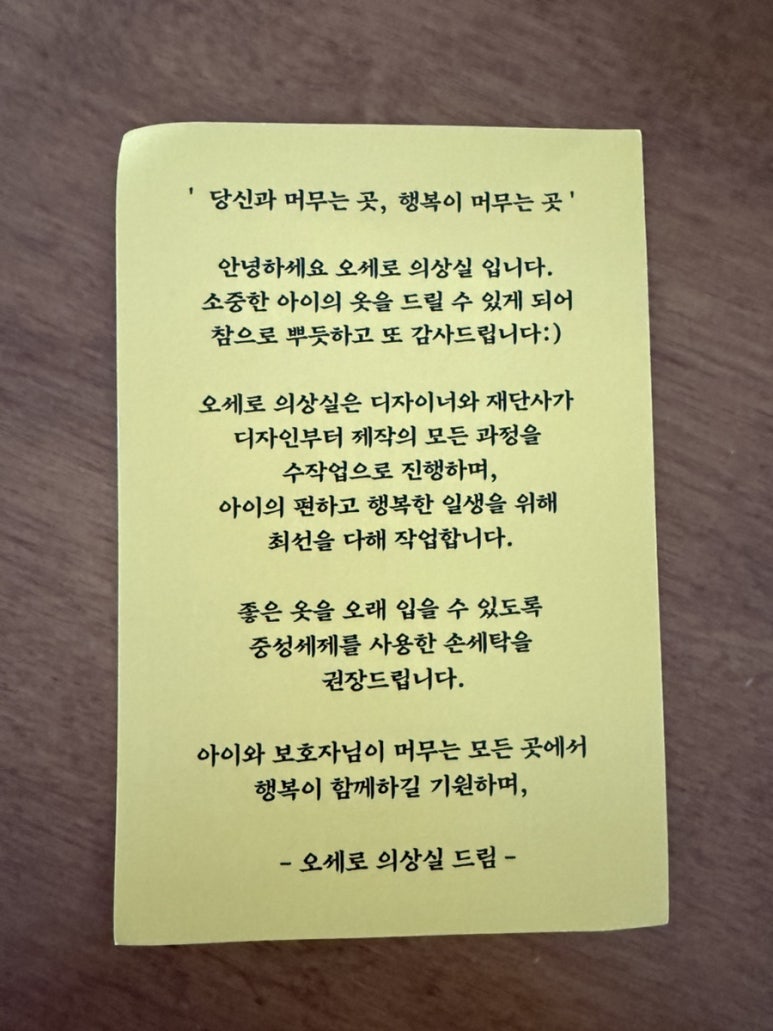 ' 당신과 머무는 곳, 행복이 머무는 곳 '
안녕하세요 오세로 의상실 입니다.
소중한 아이의 옷을 드릴 수 있게 되어
참으로 뿌듯하고 또 감사드립니다:)
오세로 의상실은 디자이너와 재단사가
디자인부터 제작의 모든 과정을
수작업으로 진행하며,
아이의 편하고 행복한 일생을 위해
최선을 다해 작업합니다.
좋은 옷을 오래 입을 수 있도록
중성세제를 사용한 손세탁을
권장드립니다.
아이와 보호자님이 머무는 모든 곳에서
행복이 함께하길 기원하며,
- 오세로 의상실 드림 -